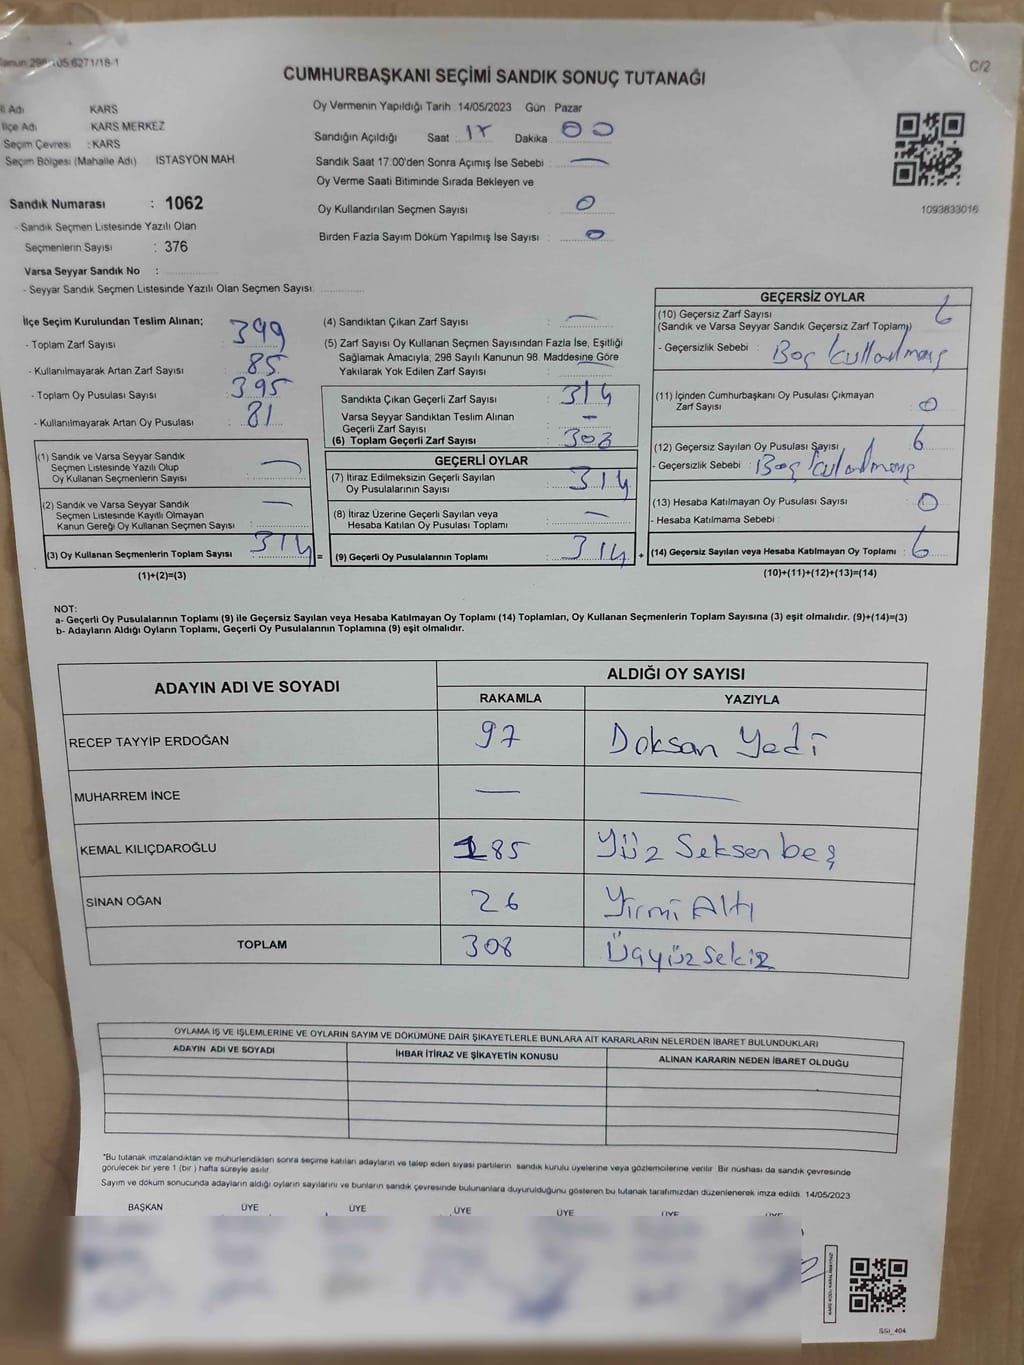 C/2
CUMHURBAŞKANI SEÇİMİ SANDIK SONUÇ TUTANAĞI
İl Adı KARS
İlçe Adı KARS MERKEZ
Seçim Çevresi : KARS
Seçim Bölgesi (Mahalle Adı) İSTASYON MAH
Oy Vermenin Yapıldığı Tarih 14/05/2023 Gün Pazar
Sandığın Açıldığı Saat 17 Dakika 00
Sandık Saat 17:00'den Sonra Açımış İse Sebebi : —
Oy Verme Saati Bitiminde Sırada Bekleyen ve
Oy Kullandırılan Seçmen Sayısı : 0
Birden Fazla Sayım Döküm Yapılmış İse Sayısı : 0
1093833016
Sandık Numarası : 1062
- Sandık Seçmen Listesinde Yazılı Olan
Seçmenlerin Sayısı : 376
Varsa Seyyar Sandık No :
- Seyyar Sandık Seçmen Listesinde Yazılı Olan Seçmen Sayısı:
İlçe Seçim Kurulundan Teslim Alınan;
- Toplam Zarf Sayısı : 399
- Kullanılmayarak Artan Zarf Sayısı : 85
- Toplam Oy Pusulası Sayısı : 395
- Kullanılmayarak Artan Oy Pusulası : 81
(1) Sandık ve Varsa Seyyar Sandık
Seçmen Listesinde Yazılı Olup
Oy Kullanan Seçmenlerin Sayısı : —
(2) Sandık ve Varsa Seyyar Sandık
Seçmen Listesinde Kayıtlı Olmayan
Kanun Gereği Oy Kullanan Seçmen Sayısı : —
(3) Oy Kullanan Seçmenlerin Toplam Sayısı : 314 =
(1)+(2)=(3)
(4) Sandıktan Çıkan Zarf Sayısı : —
(5) Zarf Sayısı Oy Kullanan Seçmen Sayısından Fazla İse, Eşitliği
Sağlamak Amacıyla; 298 Sayılı Kanunun 98. Maddesine Göre
Yakılarak Yok Edilen Zarf Sayısı : —
Sandıkta Çıkan Geçerli Zarf Sayısı : 314
Varsa Seyyar Sandıktan Teslim Alınan
Geçerli Zarf Sayısı : —
(6) Toplam Geçerli Zarf Sayısı : 308
GEÇERLİ OYLAR
(7) İtiraz Edilmeksizin Geçerli Sayılan
Oy Pusulalarının Sayısı : 314
(8) İtiraz Üzerine Geçerli Sayılan veya
Hesaba Katılan Oy Pusulası Toplamı : —
(9) Geçerli Oy Pusulalarının Toplamı : 314 +
GEÇERSİZ OYLAR
(10) Geçersiz Zarf Sayısı : 6
(Sandık ve Varsa Seyyar Sandık Geçersiz Zarf Toplamı)
- Geçersizlik Sebebi : Boş kullanılmış
(11) İçinden Cumhurbaşkanı Oy Pusulası Çıkmayan
Zarf Sayısı : 0
(12) Geçersiz Sayılan Oy Pusulası Sayısı : 6
- Geçersizlik Sebebi : Boş kullanılmış
(13) Hesaba Katılmayan Oy Pusulası Sayısı : 0
- Hesaba Katılmama Sebebi :
(14) Geçersiz Sayılan veya Hesaba Katılmayan Oy Toplamı : 6
(10)+(11)+(12)+(13)=(14)
NOT:
a- Geçerli Oy Pusulalarının Toplamı (9) ile Geçersiz Sayılan veya Hesaba Katılmayan Oy Toplamı (14) Toplamları, Oy Kullanan Seçmenlerin Toplam Sayısına (3) eşit olmalıdır. (9)+(14)=(3)
b- Adayların Aldığı Oyların Toplamı, Geçerli Oy Pusulalarının Toplamına (9) eşit olmalıdır.
ADAYIN ADI VE SOYADI ALDIĞI OY SAYISI
RAKAMLA YAZIYLA
RECEP TAYYİP ERDOĞAN 97 Doksan Yedi
MUHARREM İNCE — —
KEMAL KILIÇDAROĞLU 185 Yüz Seksen beş
SİNAN OĞAN 26 Yirmi Altı
TOPLAM 308 Üçyüz sekiz
OYLAMA İŞ VE İŞLEMLERİNE VE OYLARIN SAYIM VE DÖKÜMÜNE DAİR ŞİKAYETLERLE BUNLARA AİT KARARLARIN NELERDEN İBARET BULUNDUKLARI
ADAYIN ADI VE SOYADI İHBAR İTİRAZ VE ŞİKAYETİN KONUSU ALINAN KARARIN NEDEN İBARET OLDUĞU
*Bu tutanak imzalandıktan ve mühürlendikten sonra seçime katılan adayların ve talep eden siyasi partilerin sandık kurulu üyelerine veya gözlemcilerine verilir. Bir nüshası da sandık çevresinde
görülecek bir yere 1 (bir ) hafta süreyle asılır.
Sayım ve döküm sonucunda adayların aldığı oyların sayılarını ve bunların sandık çevresinde bulunanlara duyurulduğunu gösteren bu tutanak tarafımızdan düzenlenerek imza edildi. 14/05/2023
BAŞKAN ÜYE ÜYE ÜYE ÜYE ÜYE ÜYE